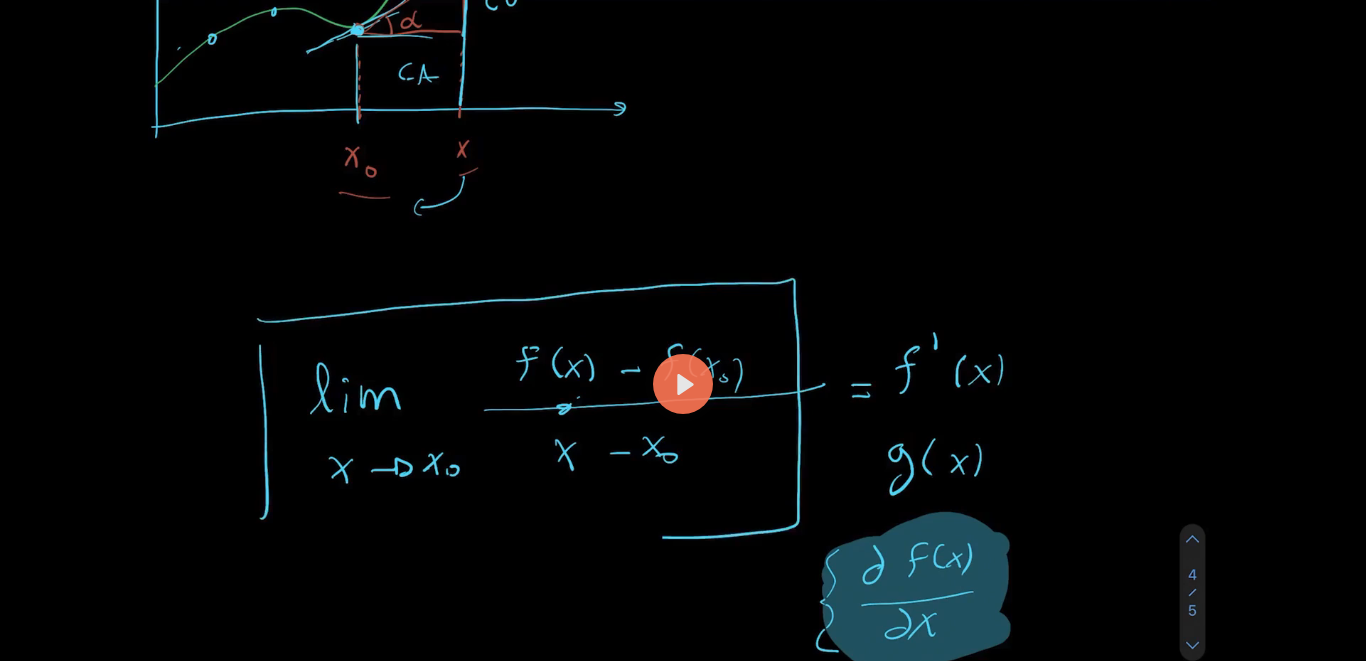 α
CA
x₀ x
lim f(x) - f(x₀) = f'(x)
x → x₀ x - x₀
g(x)
∂ f(x)
∂x
4
/
5